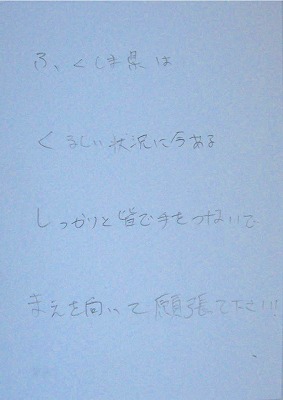 ふ、くしま県は
くるしい状況に今ある
しっかりと皆で手をつないで
まえを向いて頑張て下さい!!